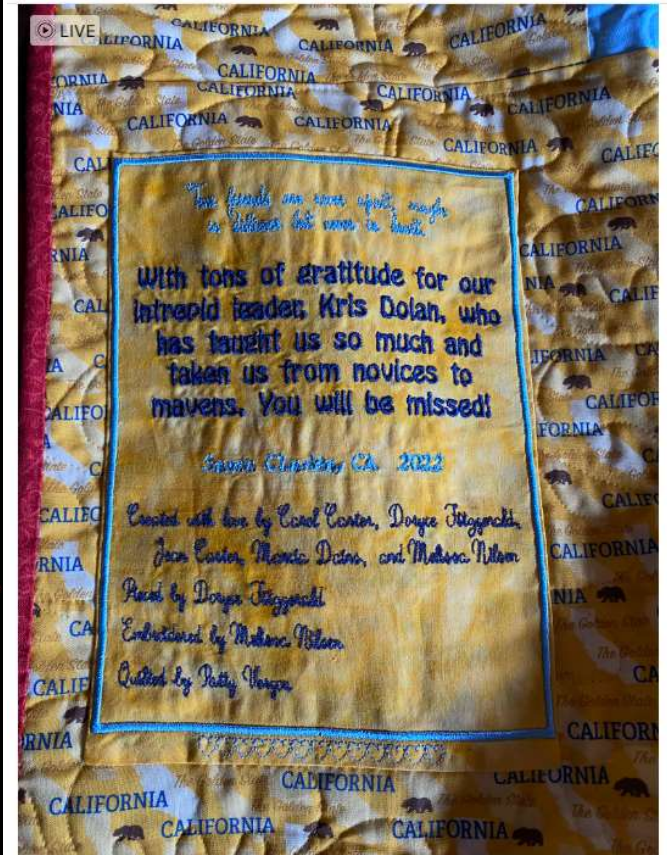 LIVE
"True friends are never apart, maybe
in distance but never in heart."
With tons of gratitude for our
intrepid leader, Kris Dolan, who
has taught us so much and
taken us from novices to
mavens. You will be missed!
Santa Clarita, CA 2022
Created with love by Carol Carter, Doryce Fitzgerald,
Jean Carter, Marcia Dains, and Melissa Nilsen
Pieced by Doryce Fitzgerald
Embroidered by Melissa Nilsen
Quilted by Patty
CALIFORNIA
The Golden State